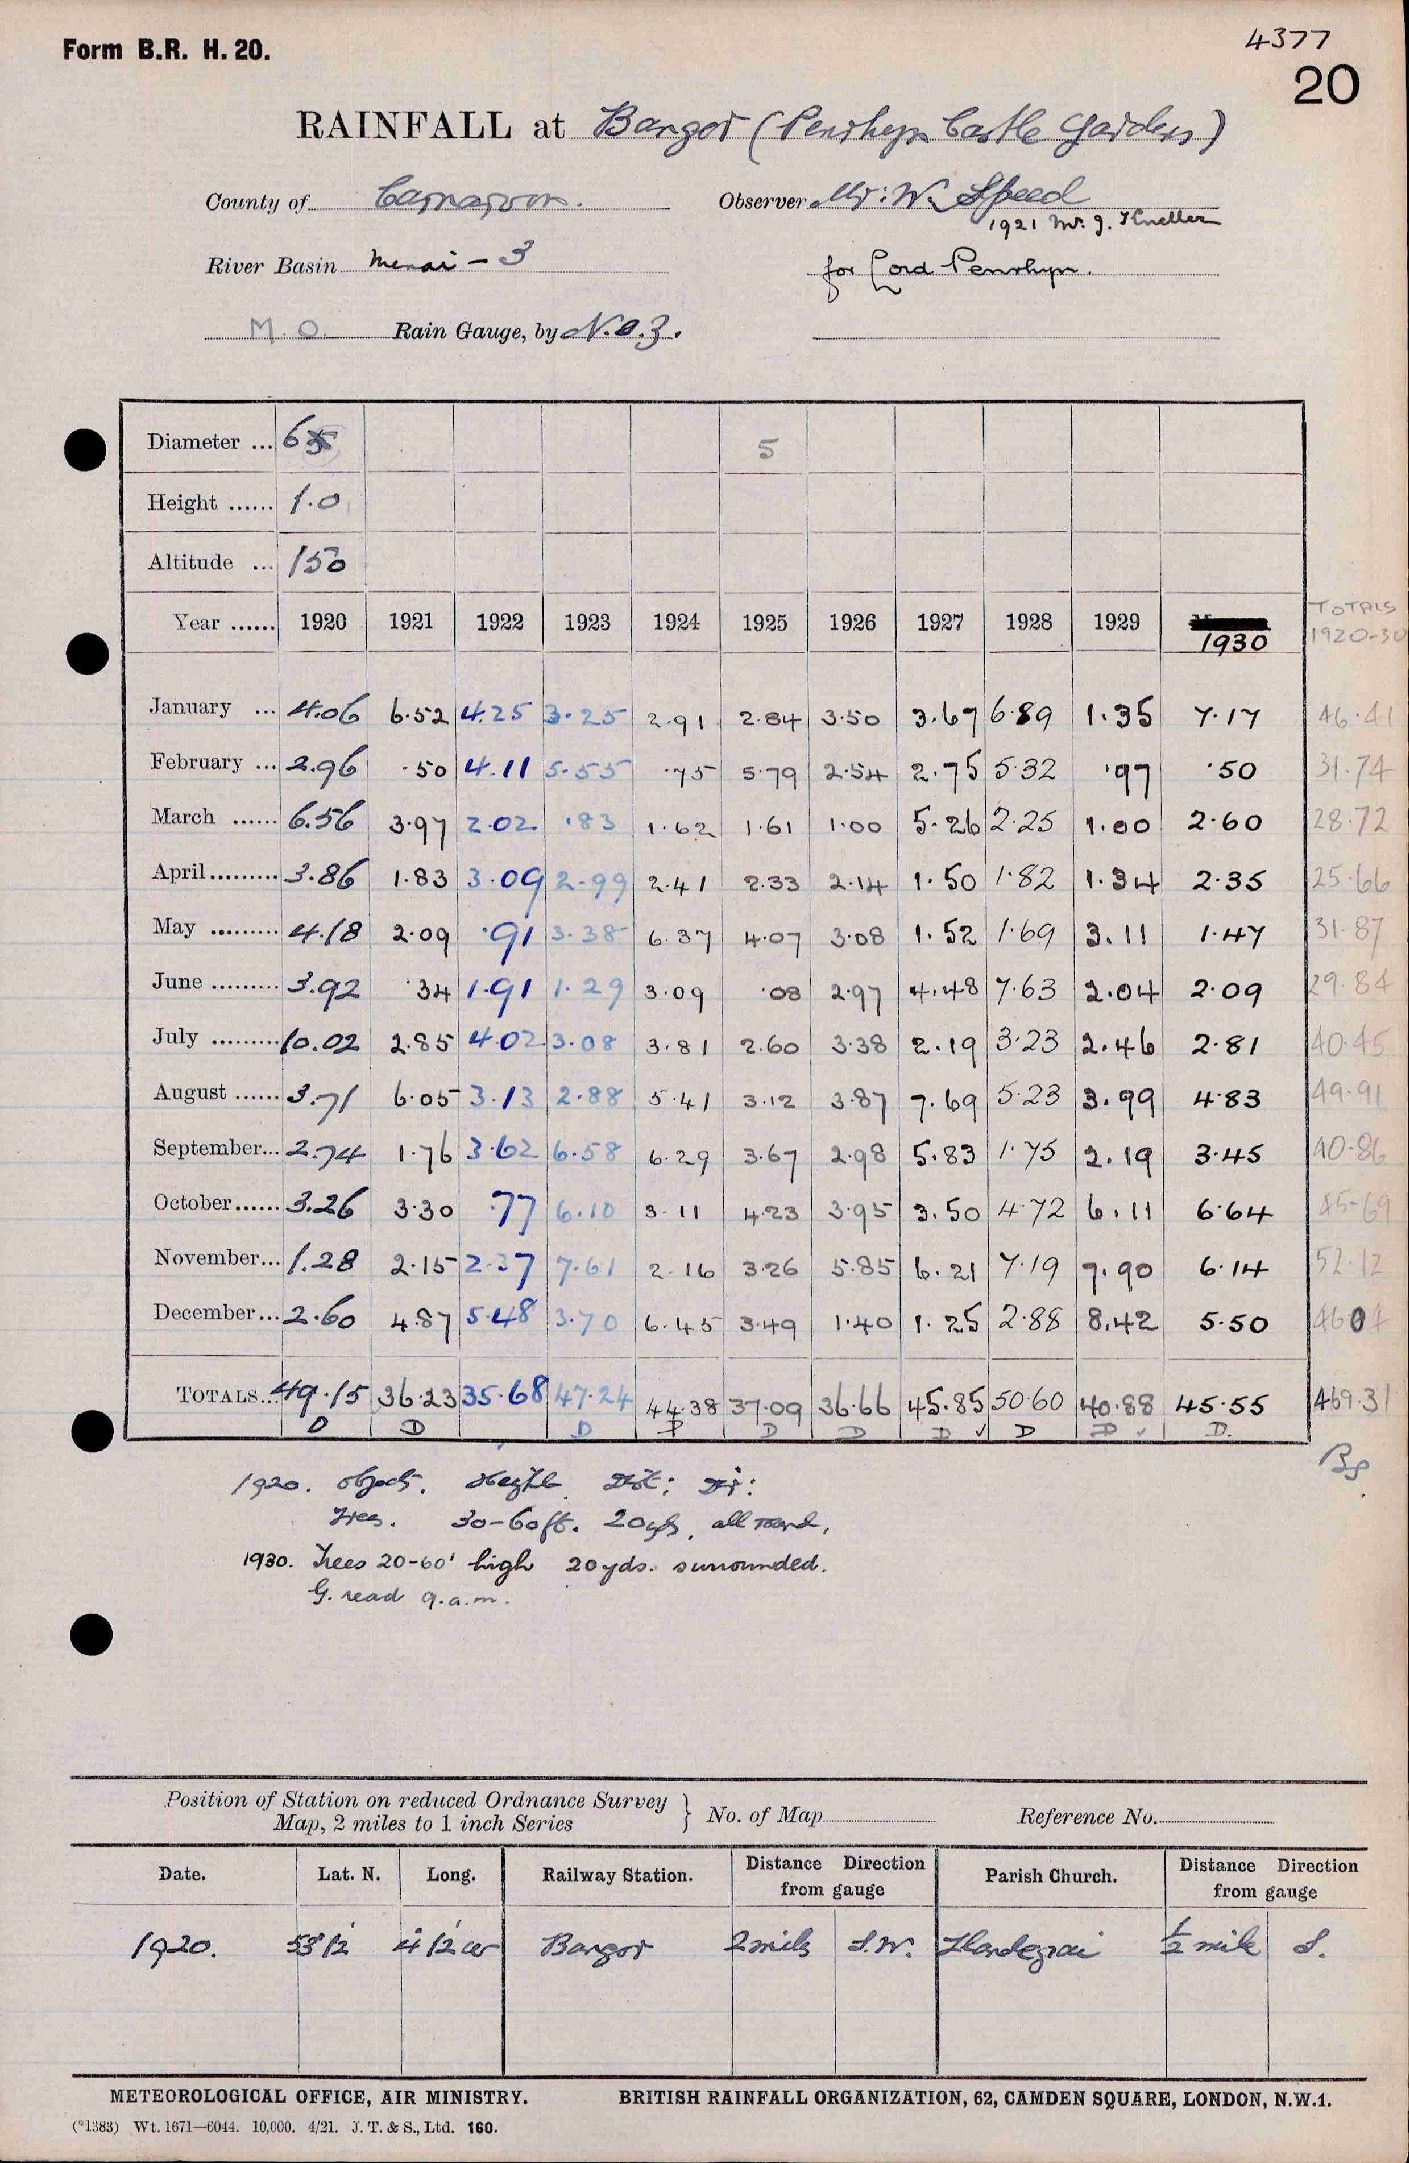 Form B.R. H. 20.
4377
20
RAINFALL at Bangor (Penrhyn Castle Gardens)
County of Carnarvon. Observer Mr: W. Speed
1921 Mr. J. Kneller
River Basin Menai - 3 for Lord Penrhyn.
M.O. Rain Gauge, by N. & Z.
Diameter ... 6 5 5
Height ...... 1.0
Altitude ... 150
Year ...... 1920 1921 1922 1923 1924 1925 1926 1927 1928 1929 1930 TOTALS 1920-30
January ... 4.06 6.52 4.25 3.25 2.91 2.84 3.50 3.67 6.89 1.35 7.17 46.41
February ... 2.96 .50 4.11 5.55 .75 5.79 2.54 2.75 5.32 .97 .50 31.74
March ...... 6.56 3.97 2.02 .83 1.62 1.61 1.00 5.26 2.25 1.00 2.60 28.72
April ......... 3.86 1.83 3.09 2.99 2.41 2.33 2.14 1.50 1.82 1.34 2.35 25.66
May ......... 4.18 2.09 .91 3.38 6.37 4.07 3.08 1.52 1.69 3.11 1.47 31.87
June ......... 3.92 .34 1.91 1.29 3.09 .08 2.97 4.48 7.63 2.04 2.09 29.84
July ......... 10.02 2.85 4.02 3.08 3.81 2.60 3.38 2.19 3.23 2.46 2.81 40.45
August ...... 3.71 6.05 3.13 2.88 5.41 3.12 3.87 7.69 5.23 3.99 4.83 49.91
September... 2.74 1.76 3.62 6.58 6.29 3.67 2.98 5.83 1.75 2.19 3.45 40.86
October...... 3.26 3.30 .77 6.10 3.11 4.23 3.95 3.50 4.72 6.11 6.64 45.69
November... 1.28 2.15 2.37 7.61 2.16 3.26 5.85 6.21 7.19 7.90 6.14 52.12
December... 2.60 4.87 5.48 3.70 6.45 3.49 1.40 1.25 2.88 8.42 5.50 46.04
TOTALS... 49.15 36.23 35.68 47.24 44.38 37.09 36.66 45.85 50.60 40.88 45.55 469.31
D D D D D D D ✓ D D ✓ D.
Bg.
1920. Objects. Height. Dist: Dir:
Trees. 30-60ft. 20yds. all round.
1930. Trees 20-60' high 20yds. surrounded.
G. read 9.a.m.
Position of Station on reduced Ordnance Survey
Map, 2 miles to 1 inch Series } No. of Map Reference No.
Date. Lat. N. Long. Railway Station. Distance Direction from gauge Parish Church. Distance Direction from gauge
1920. 53° 12' 4° 12' W Bangor 2 miles S.W. Llandegai ½ mile S.
METEOROLOGICAL OFFICE, AIR MINISTRY. BRITISH RAINFALL ORGANIZATION, 62, CAMDEN SQUARE, LONDON, N.W.1.
(*1383) Wt. 1671—6044. 10,000. 4/21. J. T. & S., Ltd. 160.